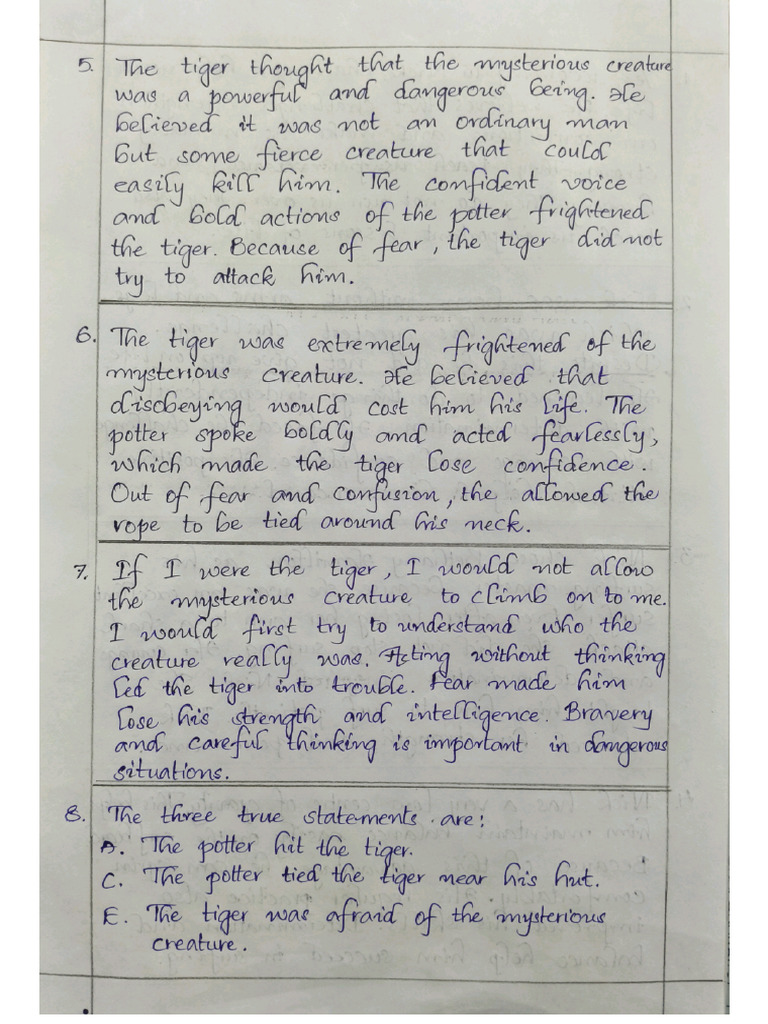 5. The tiger thought that the mysterious creature
was a powerful and dangerous being. He
believed it was not an ordinary man
but some fierce creature that could
easily kill him. The confident voice
and bold actions of the potter frightened
the tiger. Because of fear, the tiger did not
try to attack him.
6. The tiger was extremely frightened of the
mysterious creature. He believed that
disobeying would cost him his life. The
potter spoke boldly and acted fearlessly,
which made the tiger lose confidence.
Out of fear and confusion, the allowed the
rope to be tied around his neck.
7. If I were the tiger, I would not allow
the mysterious creature to climb on to me.
I would first try to understand who the
creature really was. Acting without thinking
led the tiger into trouble. Fear made him
lose his strength and intelligence. Bravery
and careful thinking is important in dangerous
situations.
8. The three true statements are:
A. The potter hit the tiger.
C. The potter tied the tiger near his hut.
E. The tiger was afraid of the mysterious
creature.